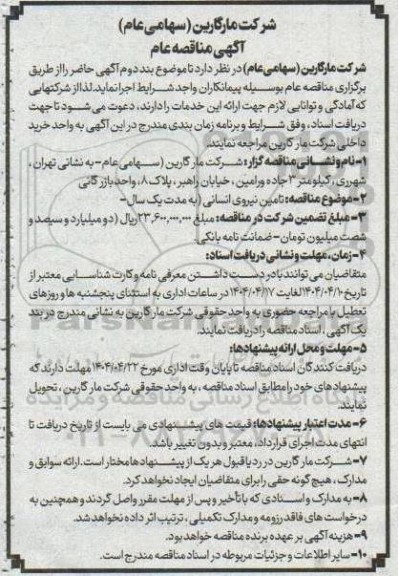 شرکت مارگارین (سهامی عام)
آگهی مناقصه عام
شرکت مارگارین (سهامی عام) در نظر دارد تا موضوع بند دوم آگهی حاضر را از طریق
برگزاری مناقصه عام بوسیله پیمانکاران واجد شرایط اجرا نماید. لذا از شرکتهایی
که آمادگی و توانایی لازم جهت ارائه این خدمات را دارند، دعوت می شود تا جهت
دریافت اسناد، وفق شرایط و برنامه زمان بندی مندرج در این آگهی به واحد خرید
داخلی شرکت مارگارین مراجعه نمایند.
۱- نام و نشانی مناقصه گزار: شرکت مارگارین (سهامی عام- به نشانی تهران،
شهرری، کیلومتر ۳ جاده ورامین، خیابان راهبر، پلاک ۸، واحد بازرگانی
۲- موضوع مناقصه: تامین نیروی انسانی (به مدت یک سال-
۳- مبلغ تضمین شرکت در مناقصه: مبلغ ۲۳,۶۰۰,۰۰۰,۰۰۰ ریال (دو میلیارد و سیصد و
شصت میلیون تومان- ضمانت نامه بانکی.
۴- زمان، مهلت و نشانی دریافت اسناد:
متقاضیان می توانند با در دست داشتن معرفی نامه و کارت شناسایی معتبر از
تاریخ ۱۴۰۴/۰۴/۱۰ لغایت ۱۴۰۴/۰۴/۱۷ در ساعات اداری به استثنای پنجشنبه ها و روزهای
تعطیل با مراجعه حضوری به واحد حقوقی شرکت مارگارین به نشانی مندرج در بند
یک آگهی، اسناد مناقصه را دریافت نمایند.
۵- مهلت و محل ارائه پیشنهادها:
دریافت کنندگان اسناد مناقصه تا پایان وقت اداری مورخ ۱۴۰۴/۰۴/۲۲ مهلت دارند که
پیشنهادهای خود را مطابق اسناد مناقصه، به واحد حقوقی شرکت مارگارین، تحویل
نمایند.
۶- مدت اعتبار پیشنهادها: قیمت های پیشنهادی می بایست از تاریخ دریافت تا
انتهای مدت اجرای قرارداد، معتبر و بدون تغییر باشد.
۷- شرکت مارگارین در رد یا قبول هر یک از پیشنهادها مختار است. ارائه سوابق و
مدارک، هیچ گونه حقی را برای متقاضیان ایجاد نخواهد کرد.
۸- به مدارک و اسنادی که با تأخیر و پس از مهلت مقرر واصل گردند و همچنین به
درخواست های فاقد رزومه و مدارک تکمیلی، ترتیب اثر داده نخواهد شد.
۹- هزینه آگهی بر عهده برنده مناقصه خواهد بود.
۱۰- سایر اطلاعات و جزئیات مربوطه در اسناد مناقصه مندرج است.